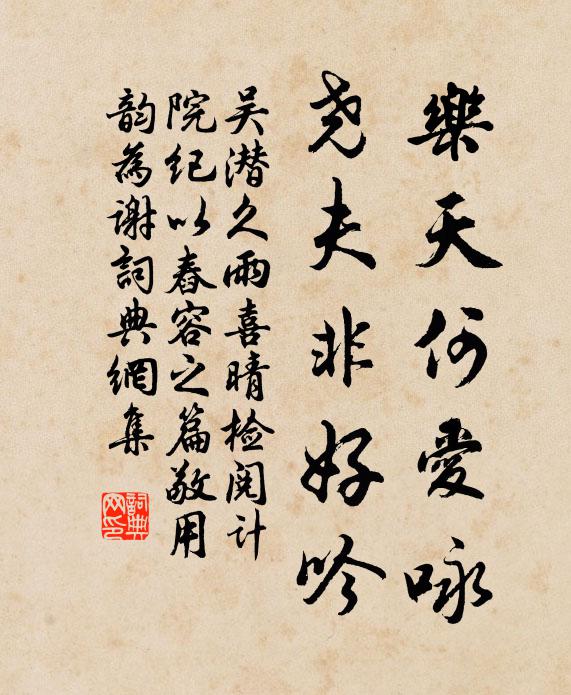 樂天何愛詠
尧夫非好吟
吴潜久雨喜晴检阅计
院纪以春容之篇敬用
韵為謝詞典網集
詞典
网印